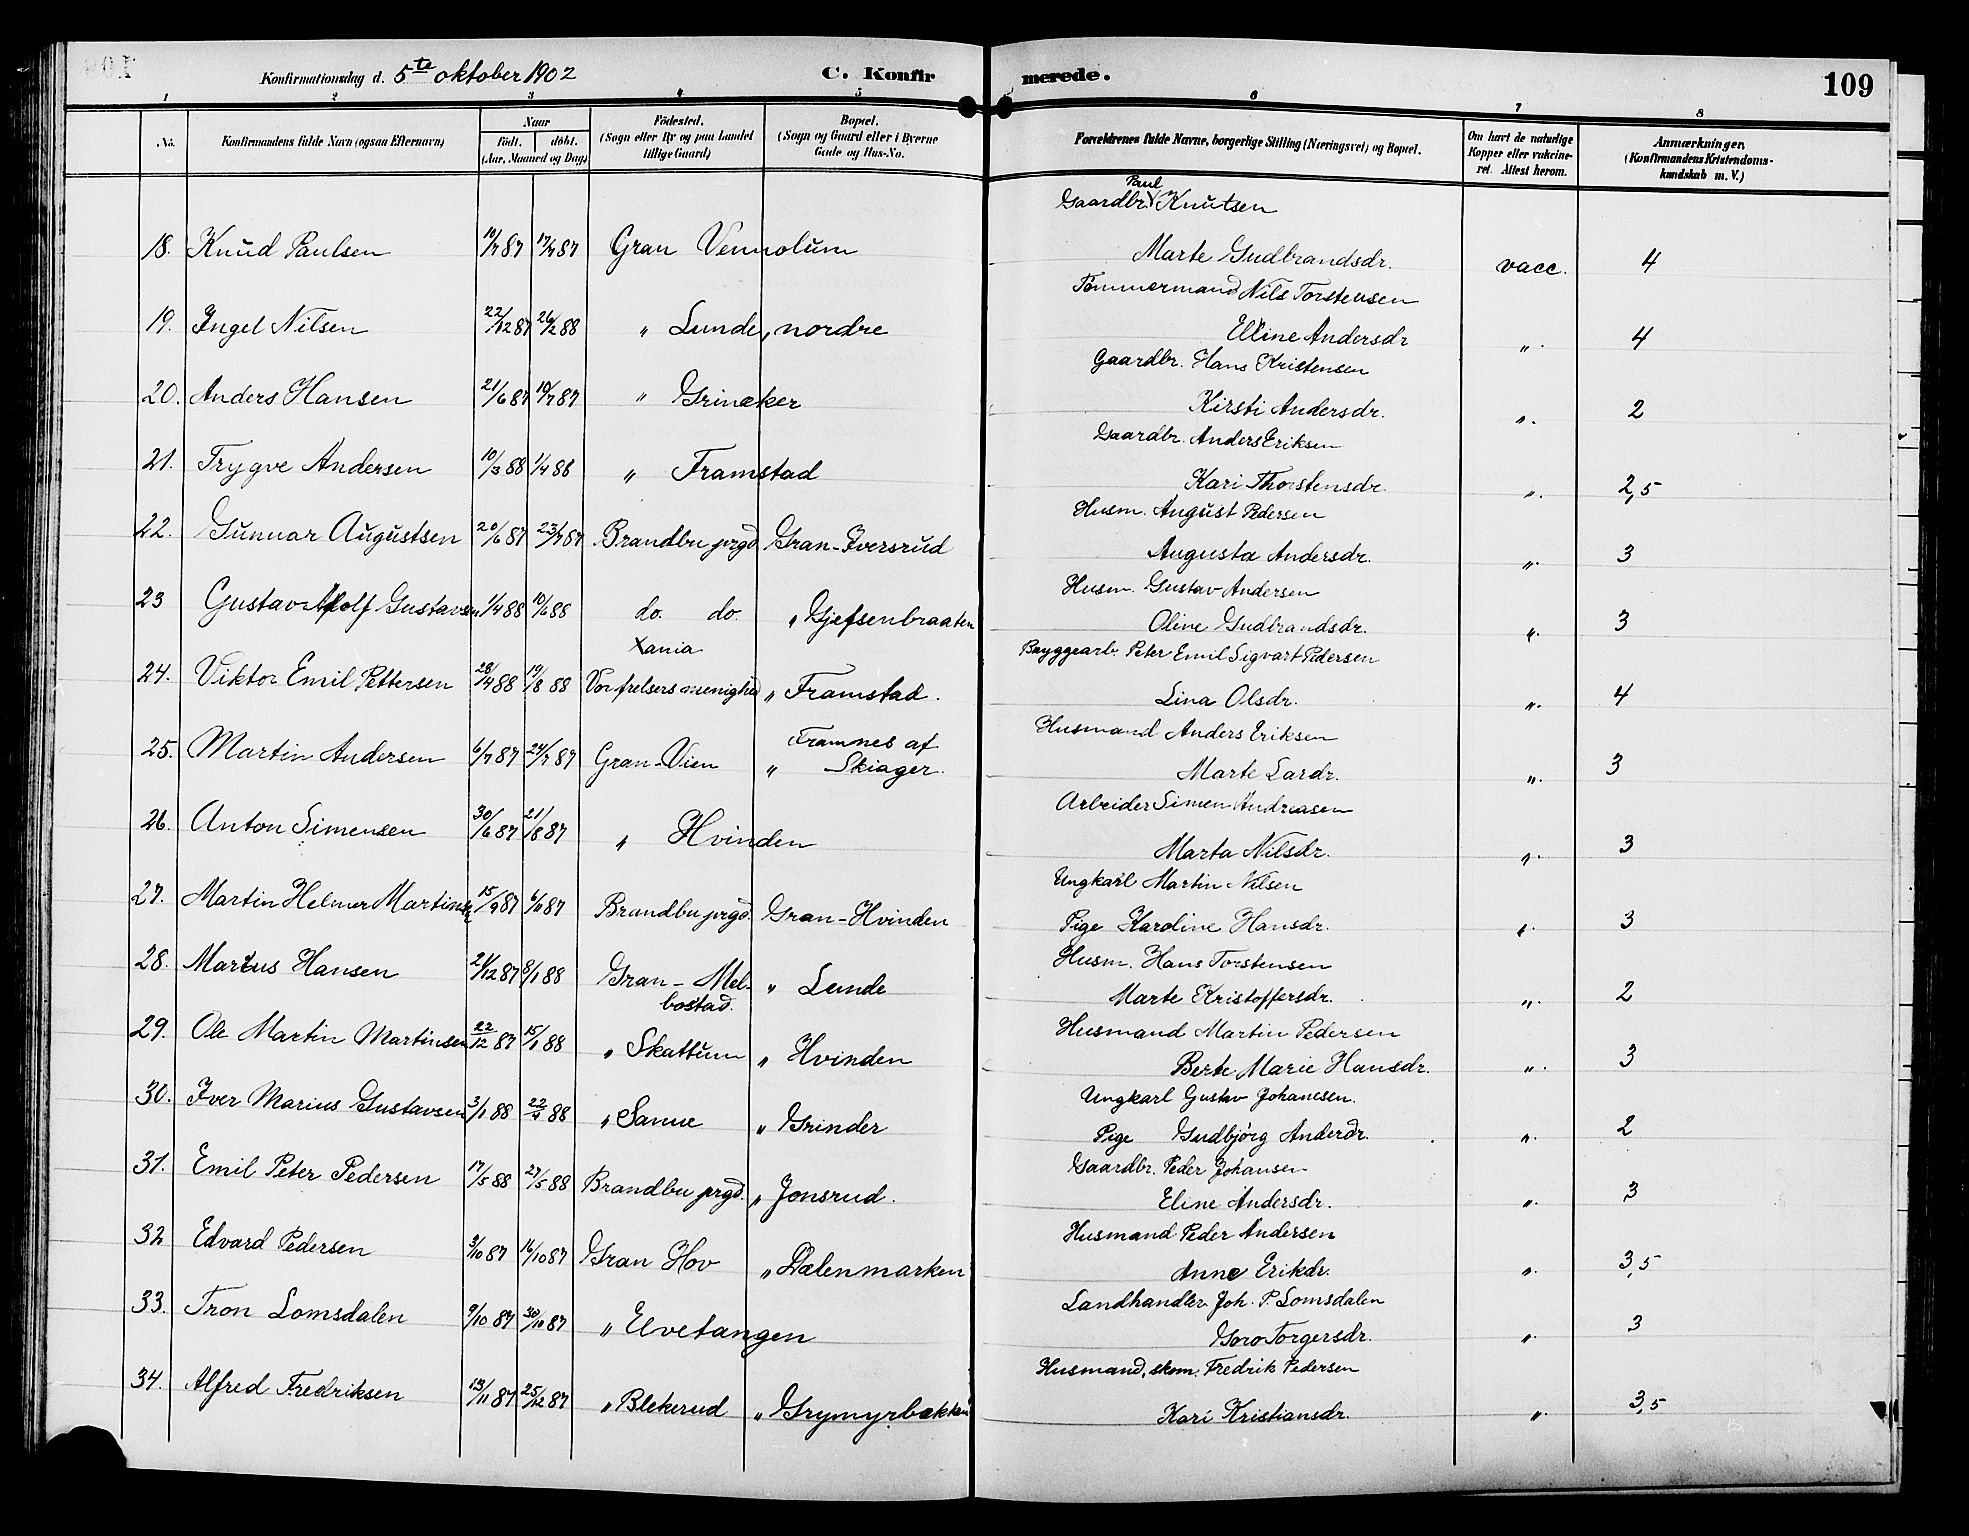 Konfirmationsdag d. 5te oktober 1902 C. Konfir merede. 109
1 2 3 4 5 6 7 8
No. Konfirmandens fulde Navn (ogsaa Efternavn) Naar født. døbt. (Aar, Maaned og Dag) Fødested. (Sogn eller By og paa Landet tillige Gaard) Bopæl. (Sogn og Gaard eller i Byerne Gade og Hus-No. Forældrenes fulde Navne, borgerlige Stilling (Næringsvei) og Bopæl. Om havt de naturlige Kopper eller vakcineret. Attest herom. Anmærkninger. (Konfirmandens Kristendomskundskab m. V.)
Gaardbr. Paul Knutsen
18. Knud Paulsen 10/7 87 17/7 87 Gran Vennolum Marte Gudbrandsdr. vacc. 4
Tømmermand Nils Torstensen
19. Ingel Nilsen 22/12 87 26/2 88 " Lunde, nordre Elline Andersdr " 4
Gaardbr. Hans Kristensen
20. Anders Hansen 21/6 87 10/7 87 " Grinaker Kirsti Andersdr. " 2
Gaardbr. Anders Eriksen
21. Trygve Andersen 10/3 88 1/4 88 " Framstad Kari Thorstensdr. " 2,5
Husm. August Pedersen
22. Gunnar Augustsen 20/6 87 23/7 87 Brandbu prgd. Gran-Iversrud Augusta Andersdr. " 3
Husm. Gustav Andersen
23 Gustav Adolf Gustavsen 1/4 88 10/6 88 do. do. " Gjefsenbraaten Oline Gudbrandsdr. " 3
Xania Bryggearb. Peter Emil Sigvart Pedersen
24. Viktor Emil Pettersen 28/4 88 19/8 88 Vor frelsers menighed " Framstad. Lina Olsdr. " 4
Framnes af Husmand Anders Eriksen
25. Martin Andersen 6/7 87 24/7 87 Gran-Vien " Skiager. Marte Lardr. " 3
Arbeider Simen Andreasen
26. Anton Simensen 30/6 87 21/8 87 " Hvinden Marta Nilsdr. " 3
Ungkarl Martin Nilsen
27. Martin Helmer Martinsen 15/9 87 6/11 87 Brandbu prgd. Gran-Hvinden Pige Karoline Hansdr. " 3
Husm. Hans Torstensen
28. Marius Hansen 21/12 87 8/1 88 Gran-Melbostad. " Lunde Marte Kristoffersdr. " 2
Husmand Martin Pedersen
29. Ole Martin Martinsen 22/12 87 15/1 88 " Skattum " Hvinden Berte Marie Hansdr. " 3
Ungkarl Gustav Johanesen.
30. Iver Marius Gustavsen 3/1 88 22/4 88 " Sanne " Grinder Pige Gudbjørg Anderdr. " 2
Gaardbr. Peder Johansen
31. Emil Peter Pedersen 17/5 88 27/5 88 Brandbu prgd. " Jonsrud. Eline Andersdr. " 3
Husmand Peder Andersen
32 Edvard Pedersen 3/10 87 16/10 87 Gran Hov " Dælenmarken Anne Erikdr. " 3,5
Landhandler Joh. P. Lomsdalen
33. Tron Lomsdalen 9/10 87 30/10 87 " Elvetangen Goro Torgersdr. " 3
Husmand, skom. Fredrik Pedersen
34. Alfred Fredriksen 13/11 87 25/12 87 " Blekerud " Grymyrbakken Kari Kristiansdr. " 3,5